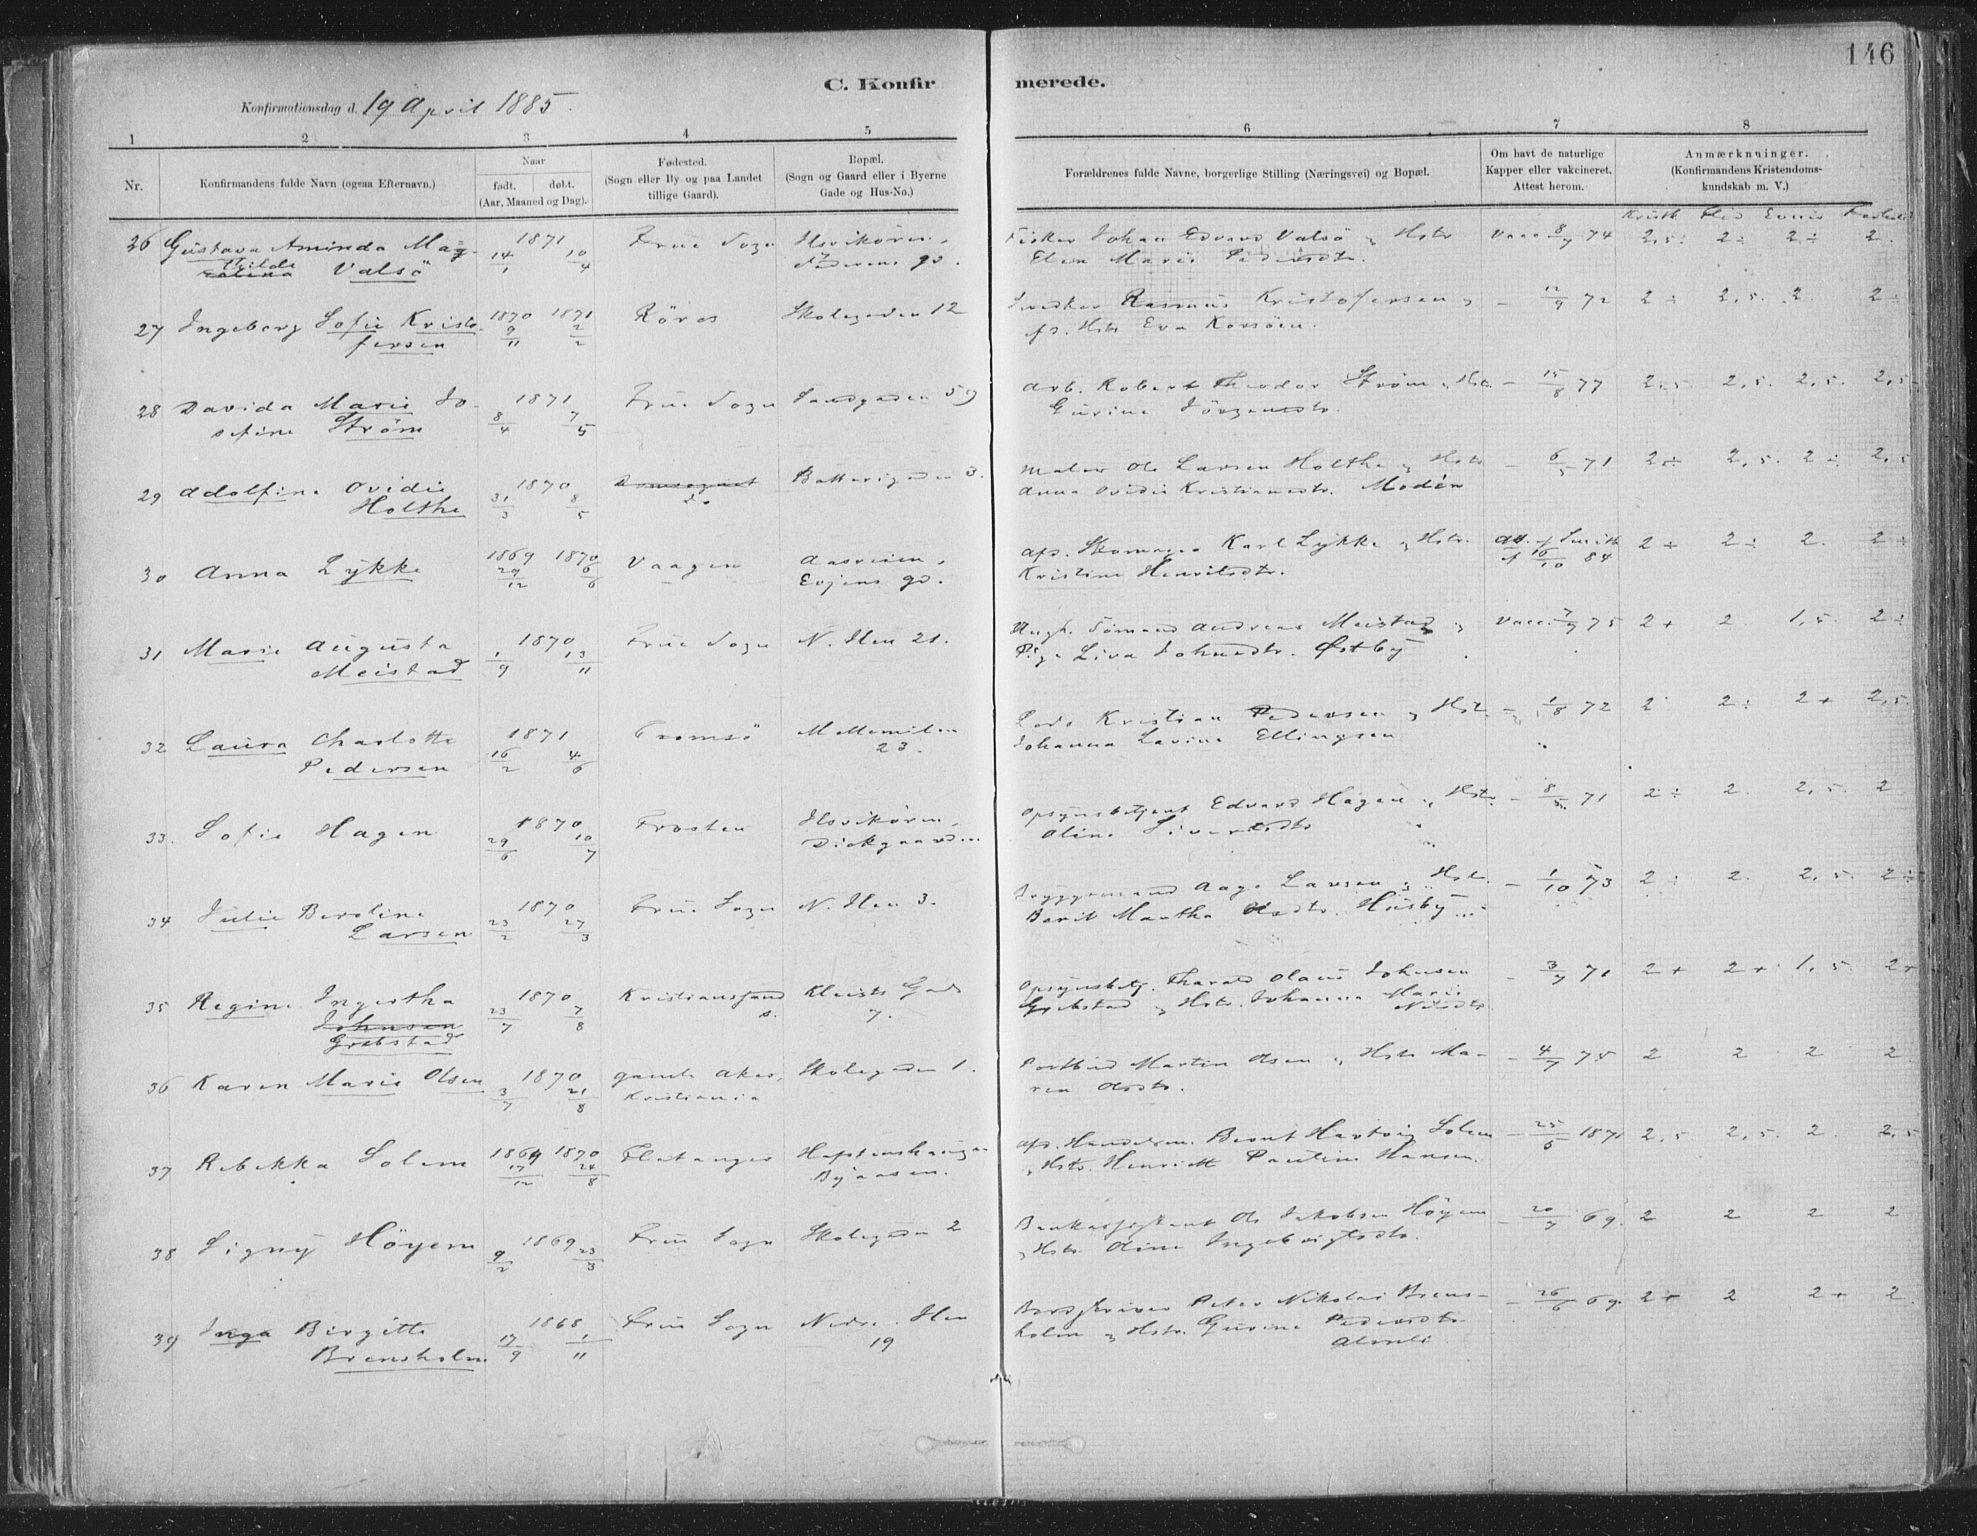 146
C. Konfirmerede.
Konfirmationsdag d. 19 April 1885.
1 2 3 4 5 6 7 8
Nr. Konfirmandens fulde Navn (ogsaa Efternavn.) Naar født. døbt. (Aar, Maaned og Dag). Fødested. (Sogn eller By og paa Landet tillige Gaard). Bopæl. (Sogn og Gaard eller i Byerne Gade og Hus-No.) Forældrenes fulde Navne, borgerlige Stilling (Næringsvei) og Bopæl. Om havt de naturlige Kapper eller vakcineret. Attest herom. Anmærkninger. (Konfirmandens Kristendomskundskab m. V.)
Kristk Flid Evner Forhold
26 Gustava Aminda Mag- 1871 Frue Sogn Ilsvikören, Fisker Johan Edvard Valsö og Hstr Vacc 8/7 74 2,5 ÷ 2 ÷ 2 ÷ 2.
thilde Valsö 14/1 10/4 gd. Elen Marie Pedersdtr.
27 Ingeborg Sofie Kristo- 1870 1871 Röros Skolegaden 12 Snedker Rasmus Kristofersen og – 12/9 72 2 ÷ 2,5. 2. 2 ÷
fersen 9/11 2/2 afd. Hstr Eva Korsöen.
28 Davida Marie Jo- 1871 Frue Sogn Sandgaden 59 Arb. Robert Theodor Strøm og Hstr. – 15/8 77 2,5 2,5. 2,5. 2,5
sefine Strøm 8/4 7/5 Gurine Jörgensdtr.
29 Adolfine Ovidie 1870 Domsognet Batterigaden 3. Maler Ole Larsen Holthe og Hstr – 6/5 71 2 ÷ 2,5. 2 ÷ 2,5
Holthe 31/3 8/5 do. Anna Ovidie Kristiansdtr. Modén
30 Anna Lykke 1869 1870 Vaagen Aasveien, afs. Skomager Karl Lykke og Hstr. Att. f Smith 2 ÷ 2 ÷ 2. 2 ÷
27/12 6/6 Evjens gd. Kristine Henriksdtr. af 16/10 84
31 Marie Augusta 1870 Frue Sogn N. Ilen 21. Ungk. Sömand Andreas Meistad og Vacc. 7/7 75 2 + 2 1,5. 2 ÷
Meistad 1/9 13/11 Pige Liva Johnsdtr. Østby
32 Laura Charlotte 1871 Tromsö Mellemilen Lods Kristian Pedersen og Hstr. – 1/8 72 2 2 ÷ 2 + 2,5
Pedersen 16/2 4/6 23. Johanna Lavine Ellingsen
33. Sofie Hagen 1870 Frosten Ilsvikören, Opsynsbetjent Edvard Hagen og Hstr. – 8/5 71 2 ÷ 2. 2,5. 2
29/6 10/7 Oline Sivertsdtr
34 Julie Beroline 1870 Frue Sogn N. Ilen 3. Bryggemand Aage Larsen og Hstr. – 1/10 73 2 ÷ 2. 2,5. 2 ÷
Larsen 23/2 27/3 Berit Martha Olsdtr. Husby
35 Regine Ingertha 1870 Kristianssund Kleists Gade Opsynsbetj. Tharald Olaus Johnsen – 3/7 71 2 + 2 + 1,5. 2 +
Johnsen 23/7 7/8 s. 7. Grebstad og Hstr. Johanna Marie
Grebstad Nilsdtr.
36 Karen Marie Olsen 1870 gamle Aker, Skolegaden 1. Postbud Martin Olsen og Hstr Ma- – 4/7 75 2 2 2 2
3/7 21/8 Kristiania ren Olsdtr.
37 Rebekka Solem 1869 1870 Flatanger Havstenshaugen afs. Handelsm. Bernt Hartvig Solem – 25/5 1871 2,5 2,5. 2 2,5
17/12 24/8 Byaasen. og Hstr. Henriette Pauline Hansen.
38 Signy Höyem 1869 Frue Sogn Skolegaden 2 Bankassistent Ole Jakobsen Höyem – 20/7 69. 2 2 2 2
9/2 23/3 og Hstr. Oline Ingebrigtsdtr.
39 Inga Birgitte 1868 Frue Sogn Nedre Ilen Bergskriver Peter Nikolai Brens- – 26/6 69. 2 + 2 2 + 2.
Brensholm 17/9 1/11 19 holm og Hstr. Gurine Pedersdtr
Almli.